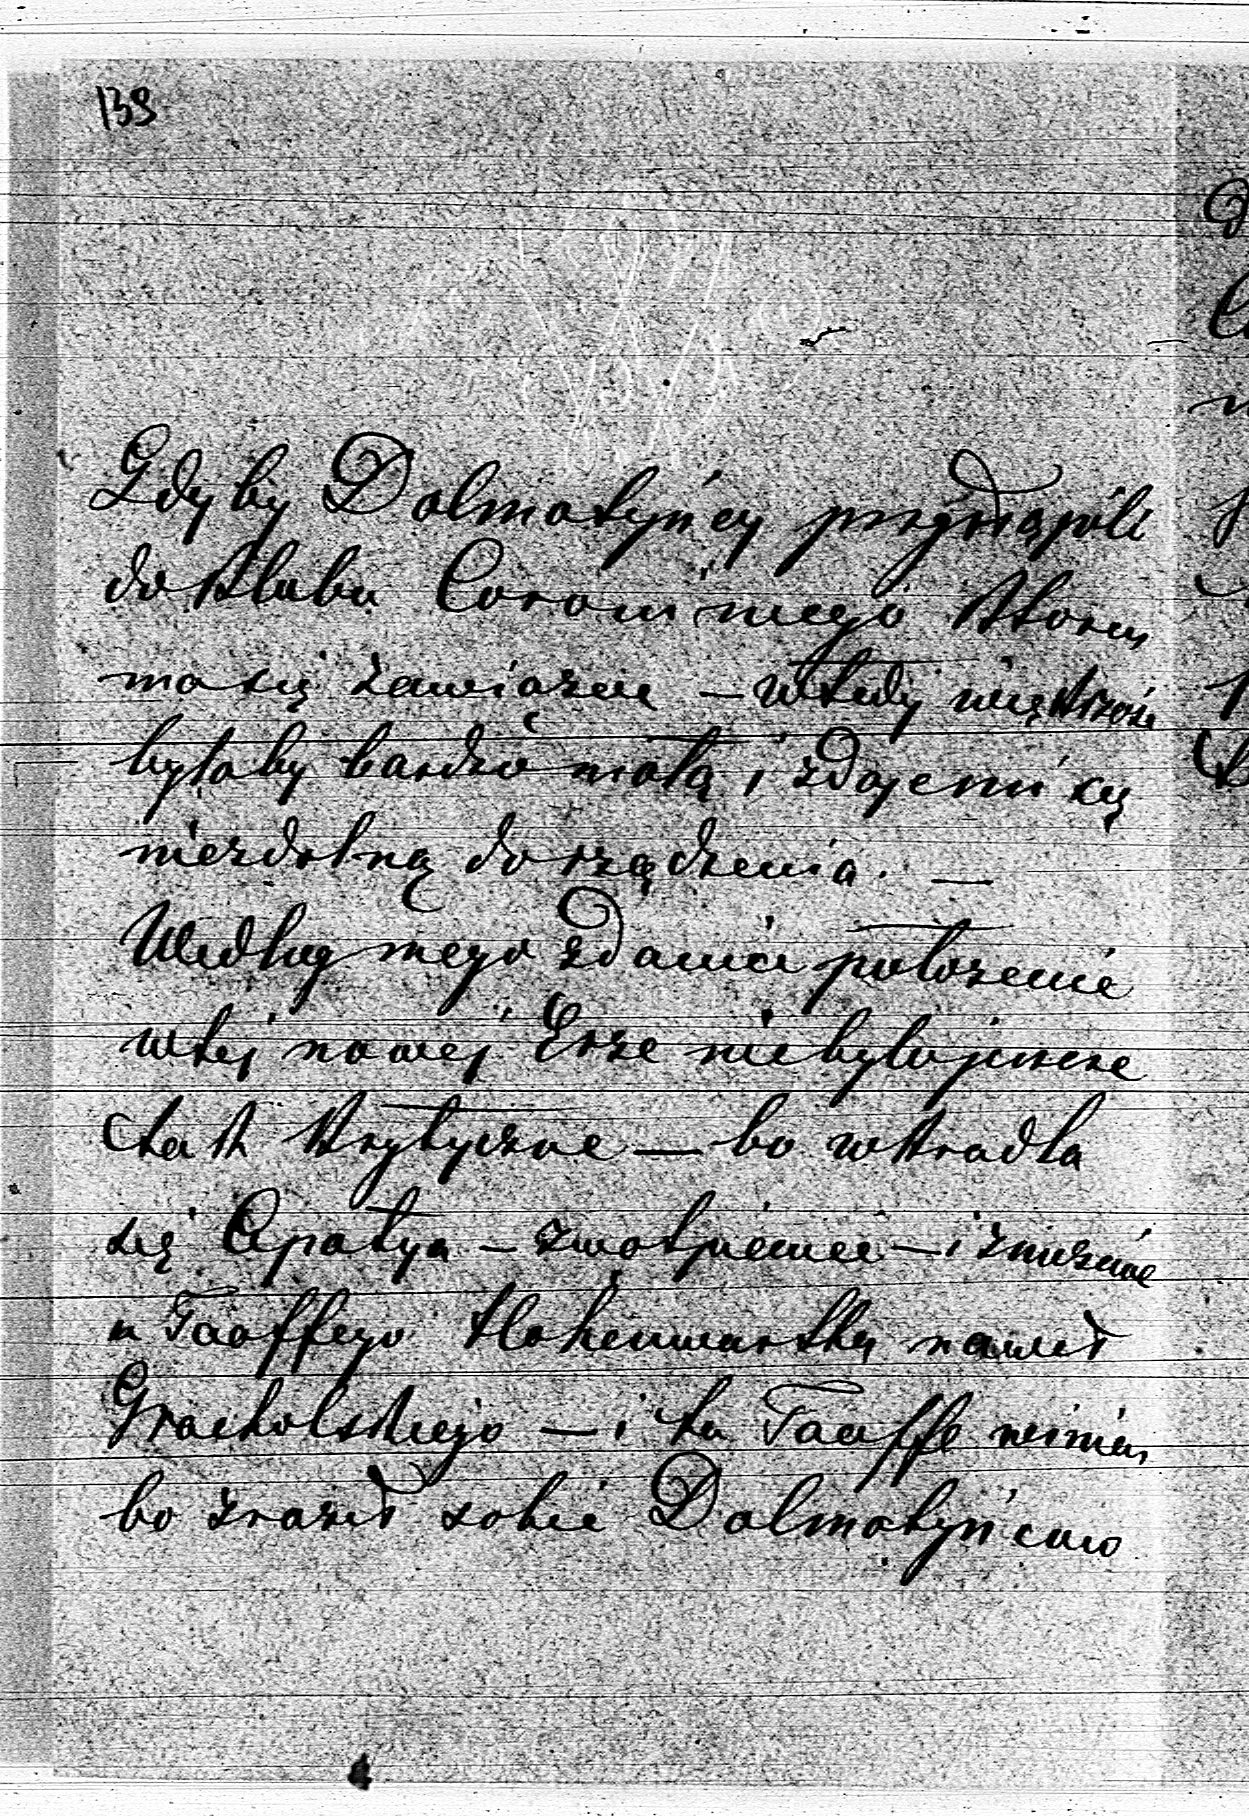 139
Gdyby Dalmatyńcy przystąpili
do Klubu Coroniniego który
ma się zawiązać – wtedy większość
byłaby bardzo małą i zdaje mi się
niezdolną do rządzenia. —
Według mego zdania położenie
w tej nowej Erze nie było jeszcze
tak krytyczne — bo wkradła
się Apatya – zwątpienie – i znużenie
u Taaffego Hohenwartha nawet
Grocholskiego — i tu Taaffe winien
bo zraził sobie Dalmatyńców